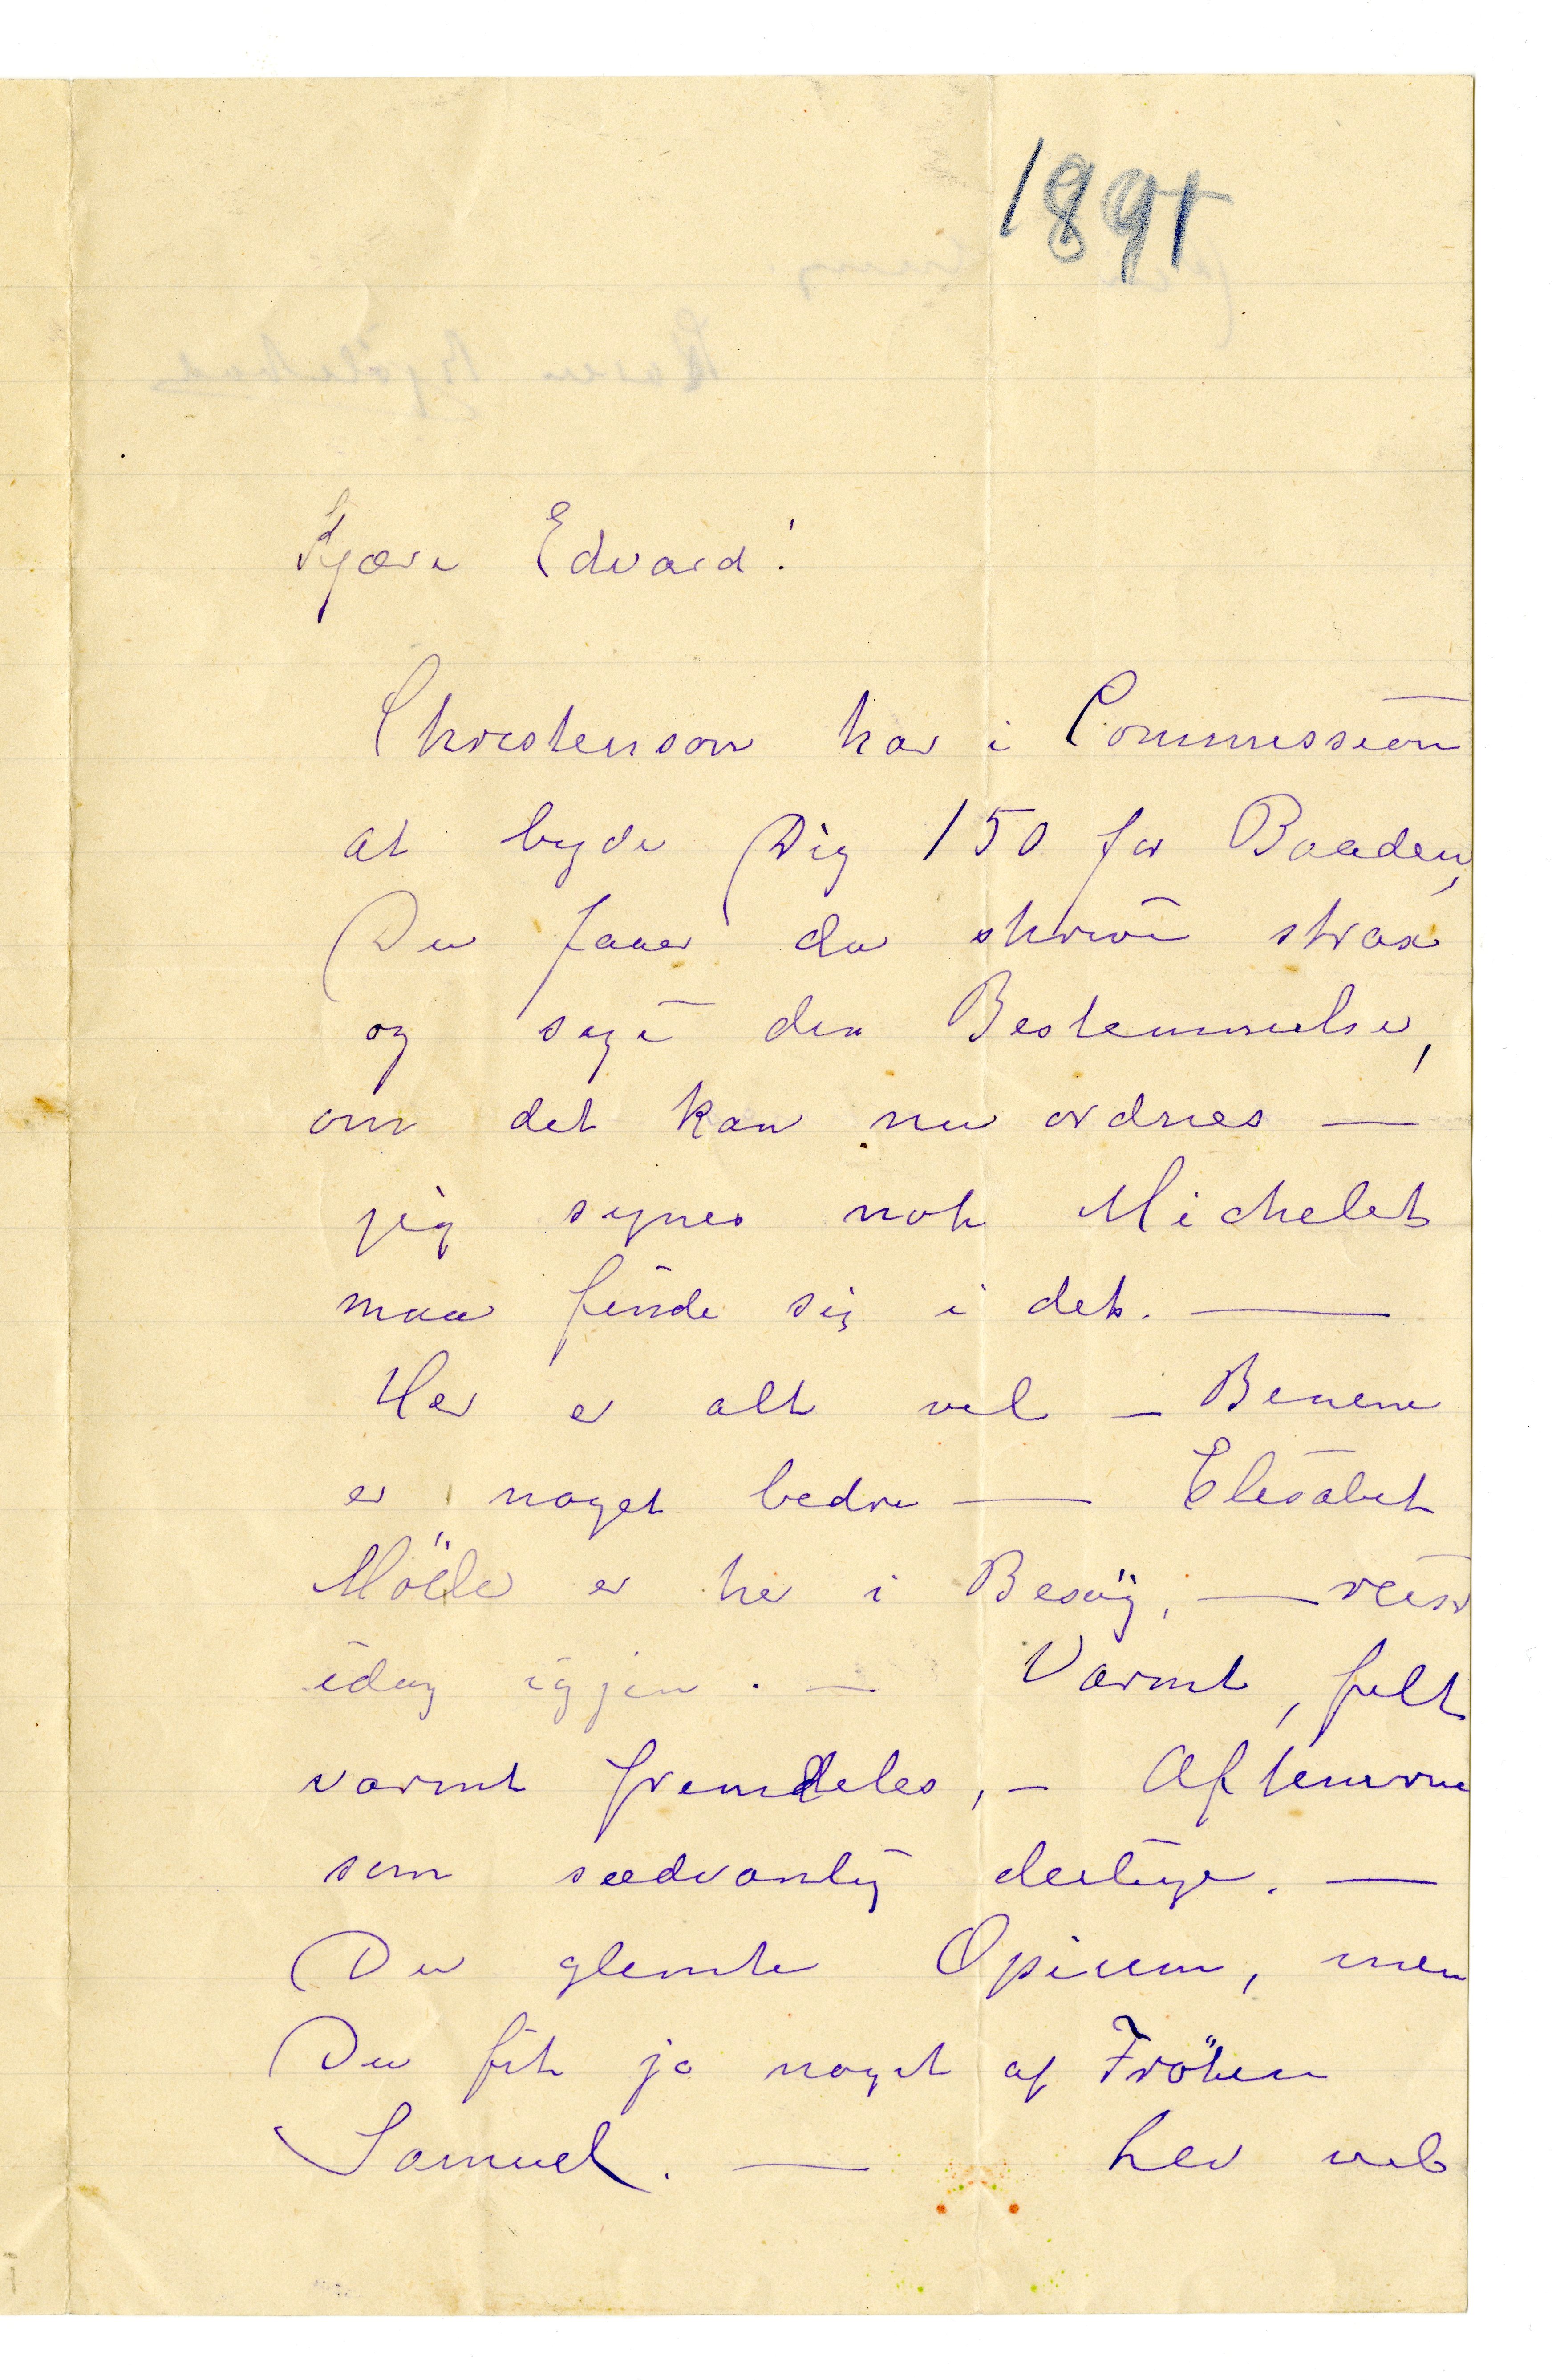 1891
Kjære Edvard!
Christensen har i Commission
at byde Dig 150 for Baaden,
Du faaer da skrive strax
og sige din Bestemmelse,
om det kan nu ordnes —
jeg synes nok Michelet
maa finde sig i det. —
Her er alt vel – Benene
er noget bedre — Elisabet
Mölle er her i Besög, — reiser
idag igjen. — Varmt, fult
varmt fremdeles, – Aftenerne
som sædvanlig deilige. —
Du glemte Opium, men
Du fik ja noget af Fröken
Samuel. — Lev vel